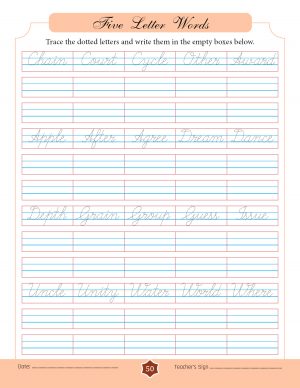 Five Letter Words
Trace the dotted letters and write them in the empty boxes below.
Chain Court Cycle Other Award
Apple After Agree Dream Dance
Depth Grain Group Guess Issue
Uncle Unity Water World Where
Date: 50 Teacher's Sign